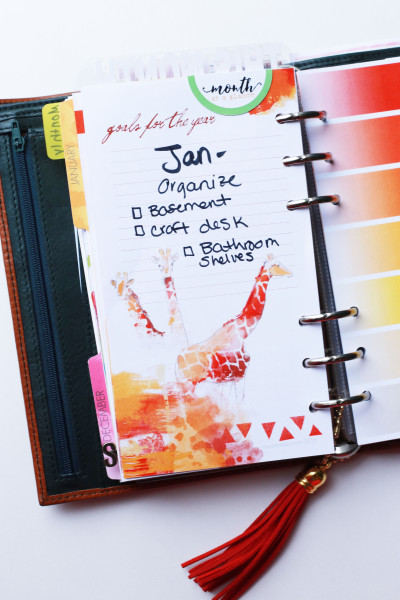 month
goals for the year
Jan-
Organize
Basement
craft desk
Bathroom
shelves
Monthly
JANUARY
DECEMBER
S